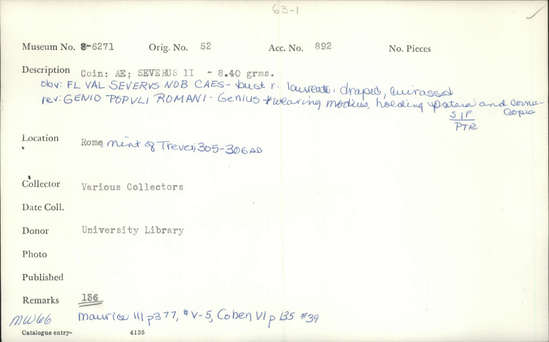 63-1
Museum No. 8-6271 Orig. No. 52 Acc. No. 892 No. Pieces
Description Coin: AE; SEVERUS II - 8.40 grms.
obv: FL VAL SEVERVS NOB CAES - bust r. laureate, draped, cuirassed
rev: GENIO POPVLI ROMANI - Genius wearing modius, holding patera and cornu-
copia
S | F
PTR
Location Rome, mint of Treves, 305-306 AD
Collector Various Collectors
Date Coll.
Donor University Library
Photo
Published
Remarks 136
MW66 Maurice III p377, #V-5, Cohen VI p 135 #39
Catalogue entry- 4138